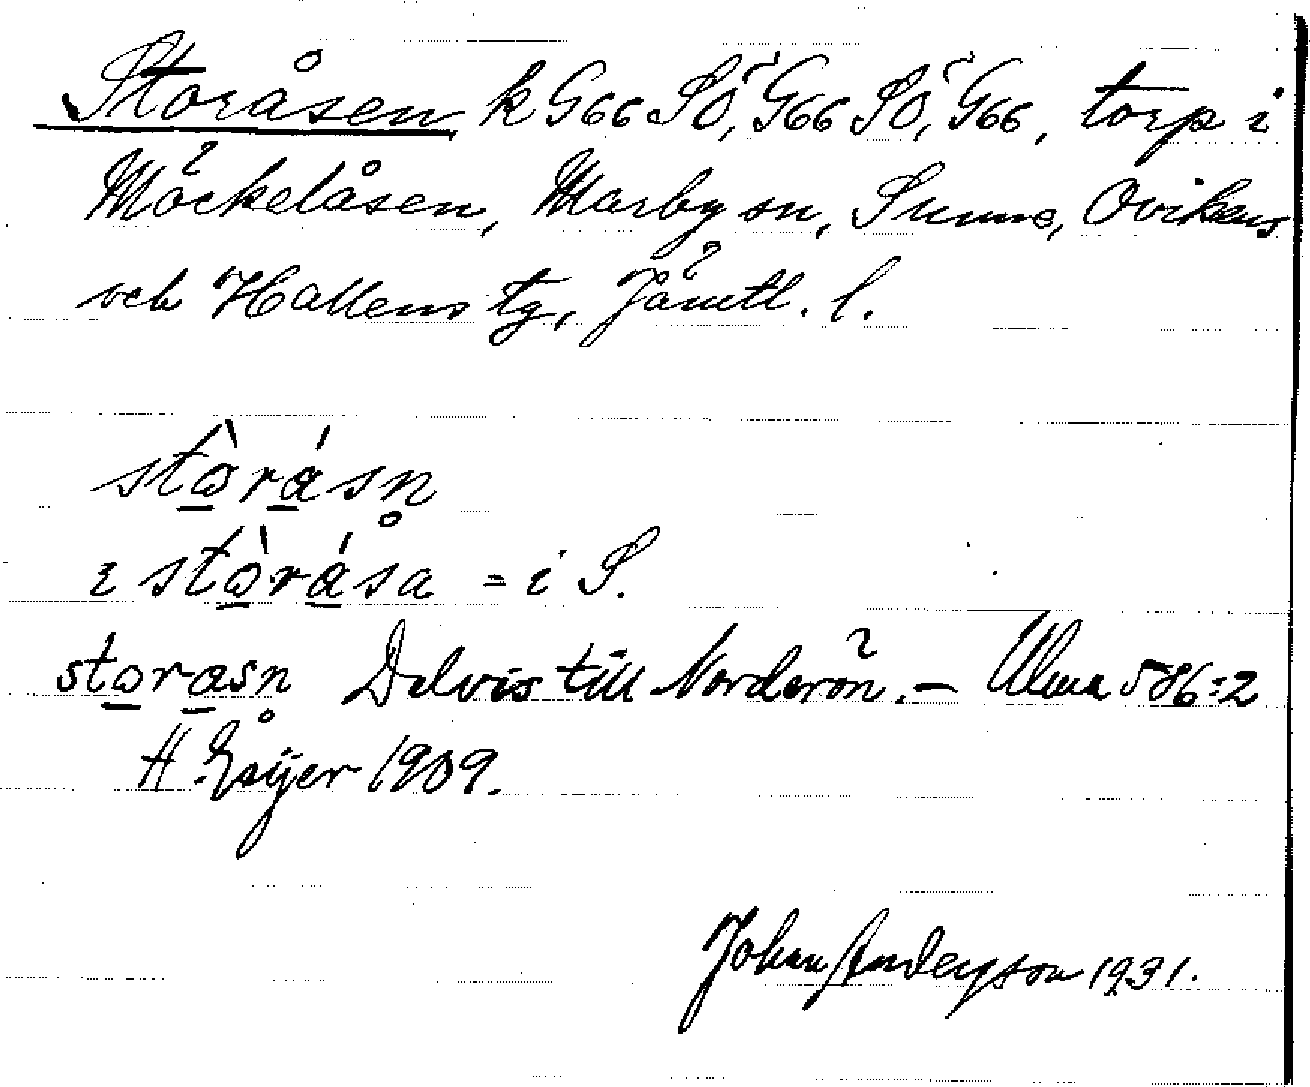 Storåsen k G66 SÖ, G66 SÖ, G66, torp i
Möckelåsen, Marby sn, Sunne, Ovikens
och Hallens tg, Jämtl. l.
stòrásn̥
i stòrása = i S.
storasn̥ Delvis till Norderön. – Ulma 586:2
H. Geijer 1909.
Johan Anderson 1931.